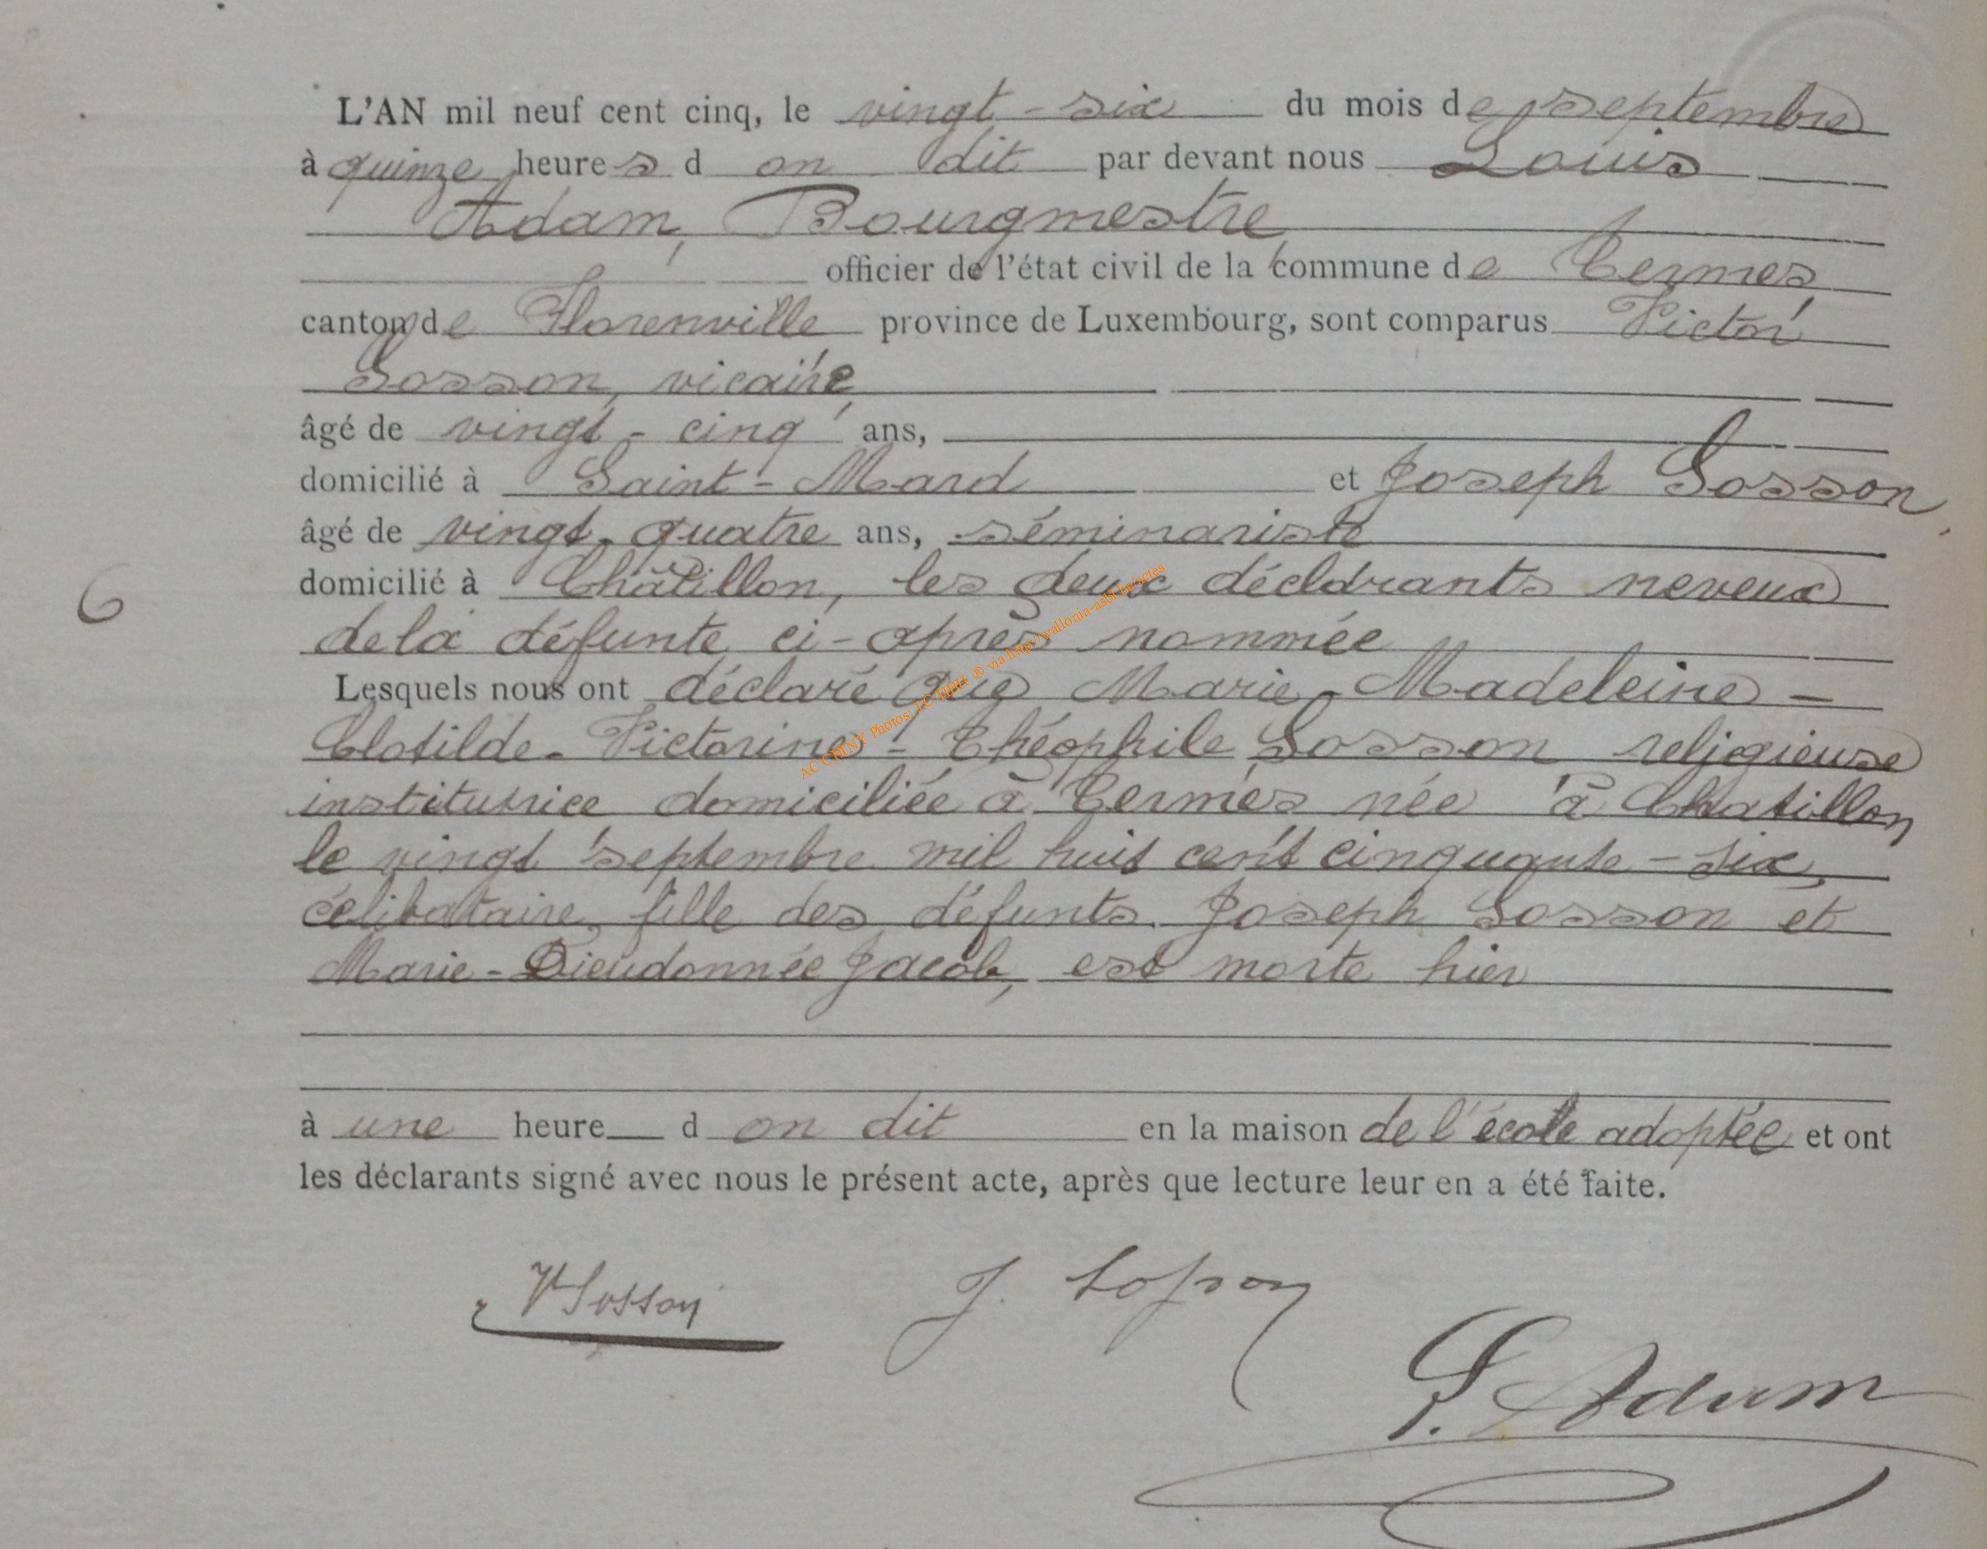 L'AN mil neuf cent cinq, le vingt-six du mois de septembre
à quinze heures d on dit par devant nous Louis
Adam, Bourgmestre,
officier de l'état civil de la commune de Termes,
canton de Florenville province de Luxembourg, sont comparus Victor
Sosson, vicaire,
âgé de vingt-cinq ans,
domicilié à Saint-Mard et Joseph Sosson,
âgé de vingt-quatre ans, séminariste
6 domicilié à Châtillon, les deux déclarants neveux
de la défunte ci-après nommée
Lesquels nous ont déclaré que Marie-Madeleine-
Clotilde-Victorine-Théophile Sosson religieuse
institutrice domiciliée à Termes née à Chatillon
le vingt septembre mil huit cent cinquante-six,
célibataire, fille des défunts Joseph Sosson et
Marie-Dieudonnée Jacob, est morte hier
à une heure d on dit en la maison de l'école adoptée et ont
les déclarants signé avec nous le présent acte, après que lecture leur en a été faite.
V Sosson J. Sosson
L. Adam
AC CHINY Photos: via http://wallonia-asbl.be/actes